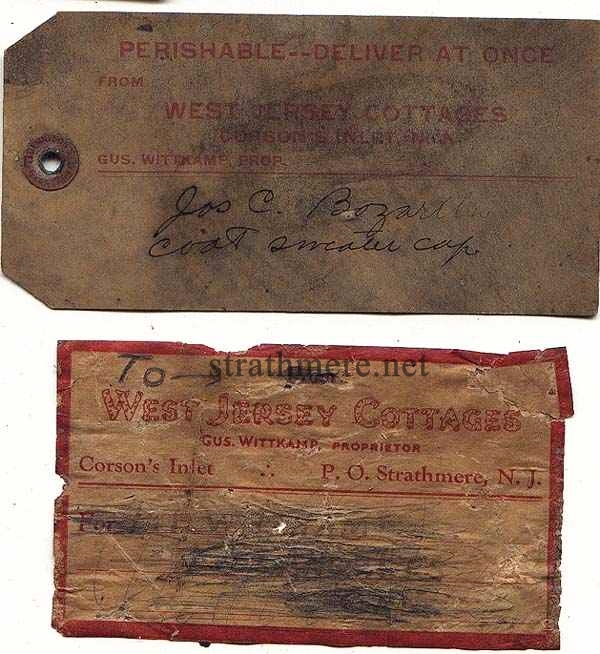 PERISHABLE--DELIVER AT ONCE
FROM
WEST JERSEY COTTAGES
CORSON'S INLET, N. J.
GUS. WITTKAMP, PROP.
Jos C. Bozarth
coat sweater cap
strathmere.net
TO
WEST JERSEY COTTAGES
GUS. WITTKAMP, PROPRIETOR
Corson's Inlet ∴ P. O. Strathmere, N. J.
For